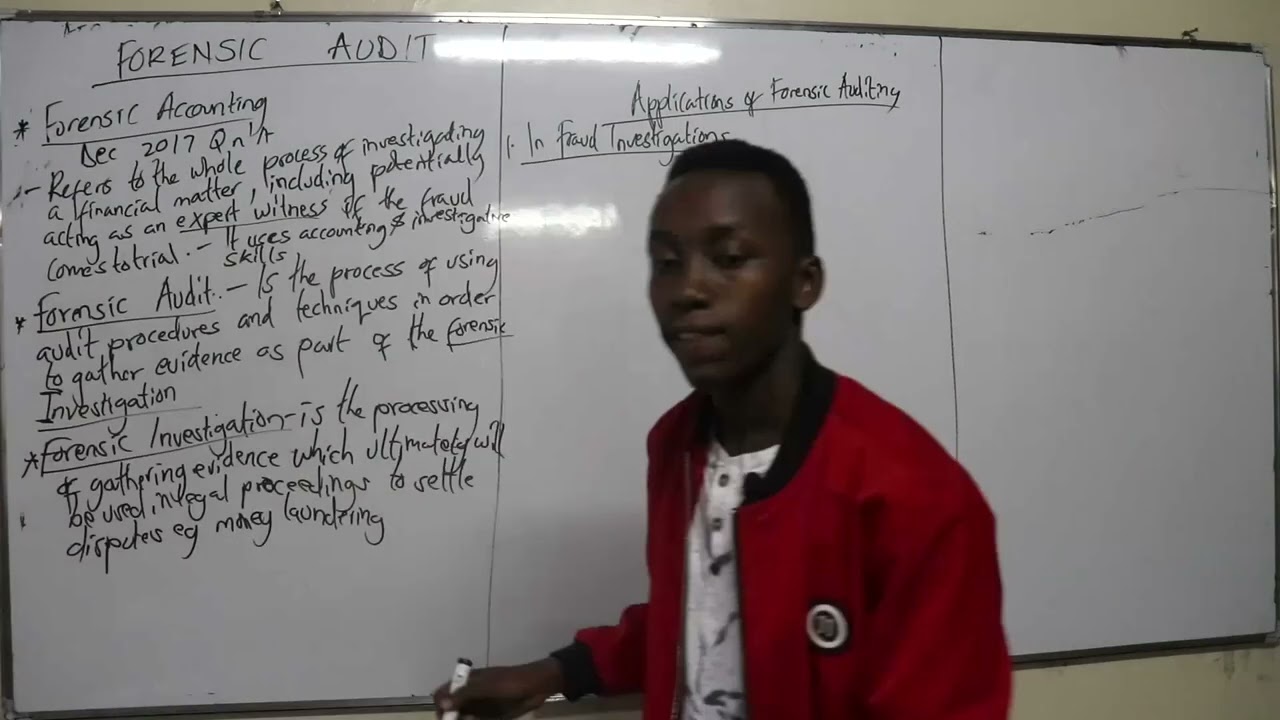 FORENSIC AUDIT
* Forensic Accounting
Dec 2017 Qn 1
- Refers to the whole process of investigating
a financial matter, including potentially
acting as an expert witness if the fraud
comes to trial. - It uses accounting & investigative
skills
* Forensic Audit. - Is the process of using
audit procedures and techniques in order
to gather evidence as part of the forensic
Investigation
* Forensic Investigation - is the processing
of gathering evidence which ultimately will
be used in legal proceedings to settle
disputes eg money laundering
Applications of Forensic Auditing
1. In Fraud Investigations